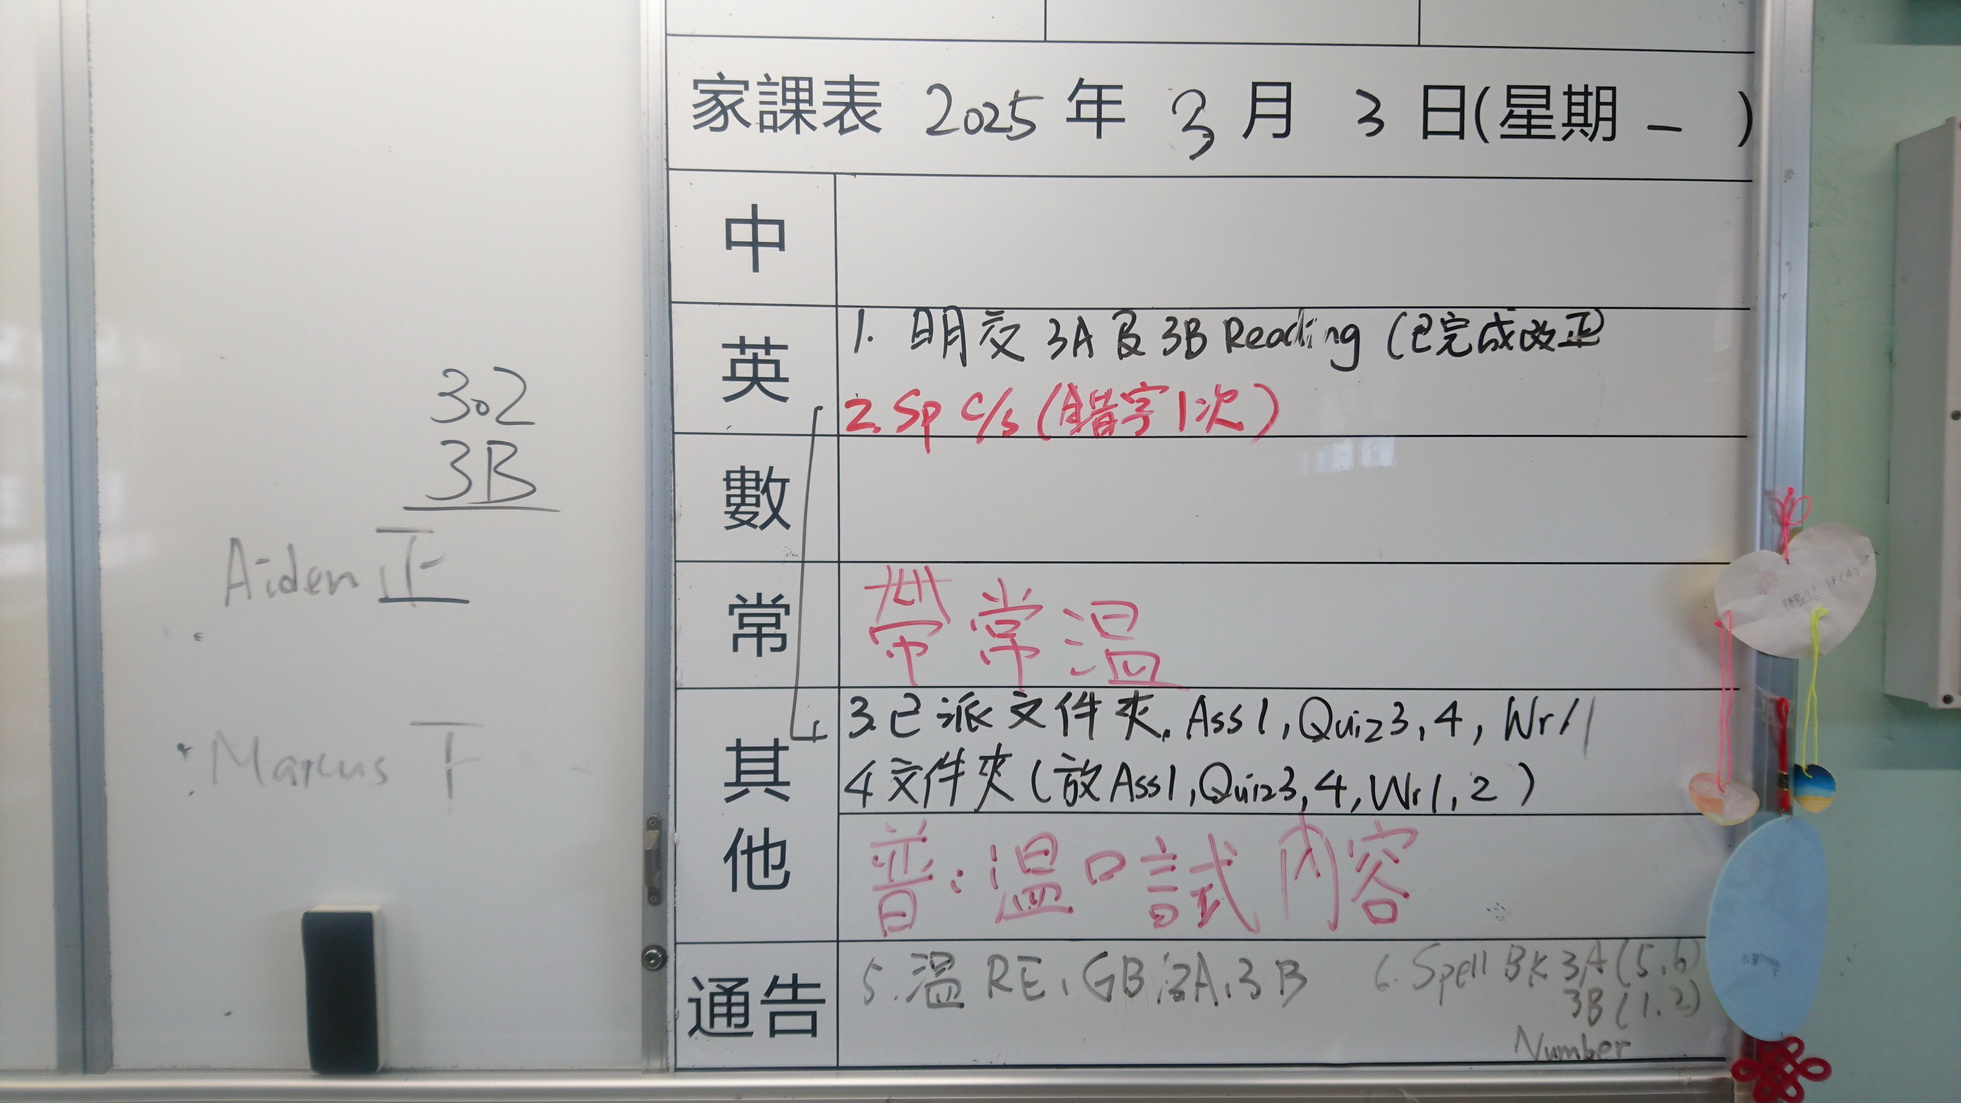 302
3B
Aiden 正
Marcus
家課表 2025 年 3 月 3 日(星期 一 )
中
英
1. 明交 3A 及 3B Reading (已完成改正
2. Sp c/s (錯字1次)
數
常
帶常溫
其他
3. 已派文件夾. Ass 1, Quiz 3, 4, Wr 1
4 文件夾 (放 Ass 1, Quiz 3, 4, Wr 1, 2)
普:溫口試內容
通告
5. 溫 RE, GB 3A, 3B
6. Spell BK 3A (5, 6)
3B (1, 2)
Number